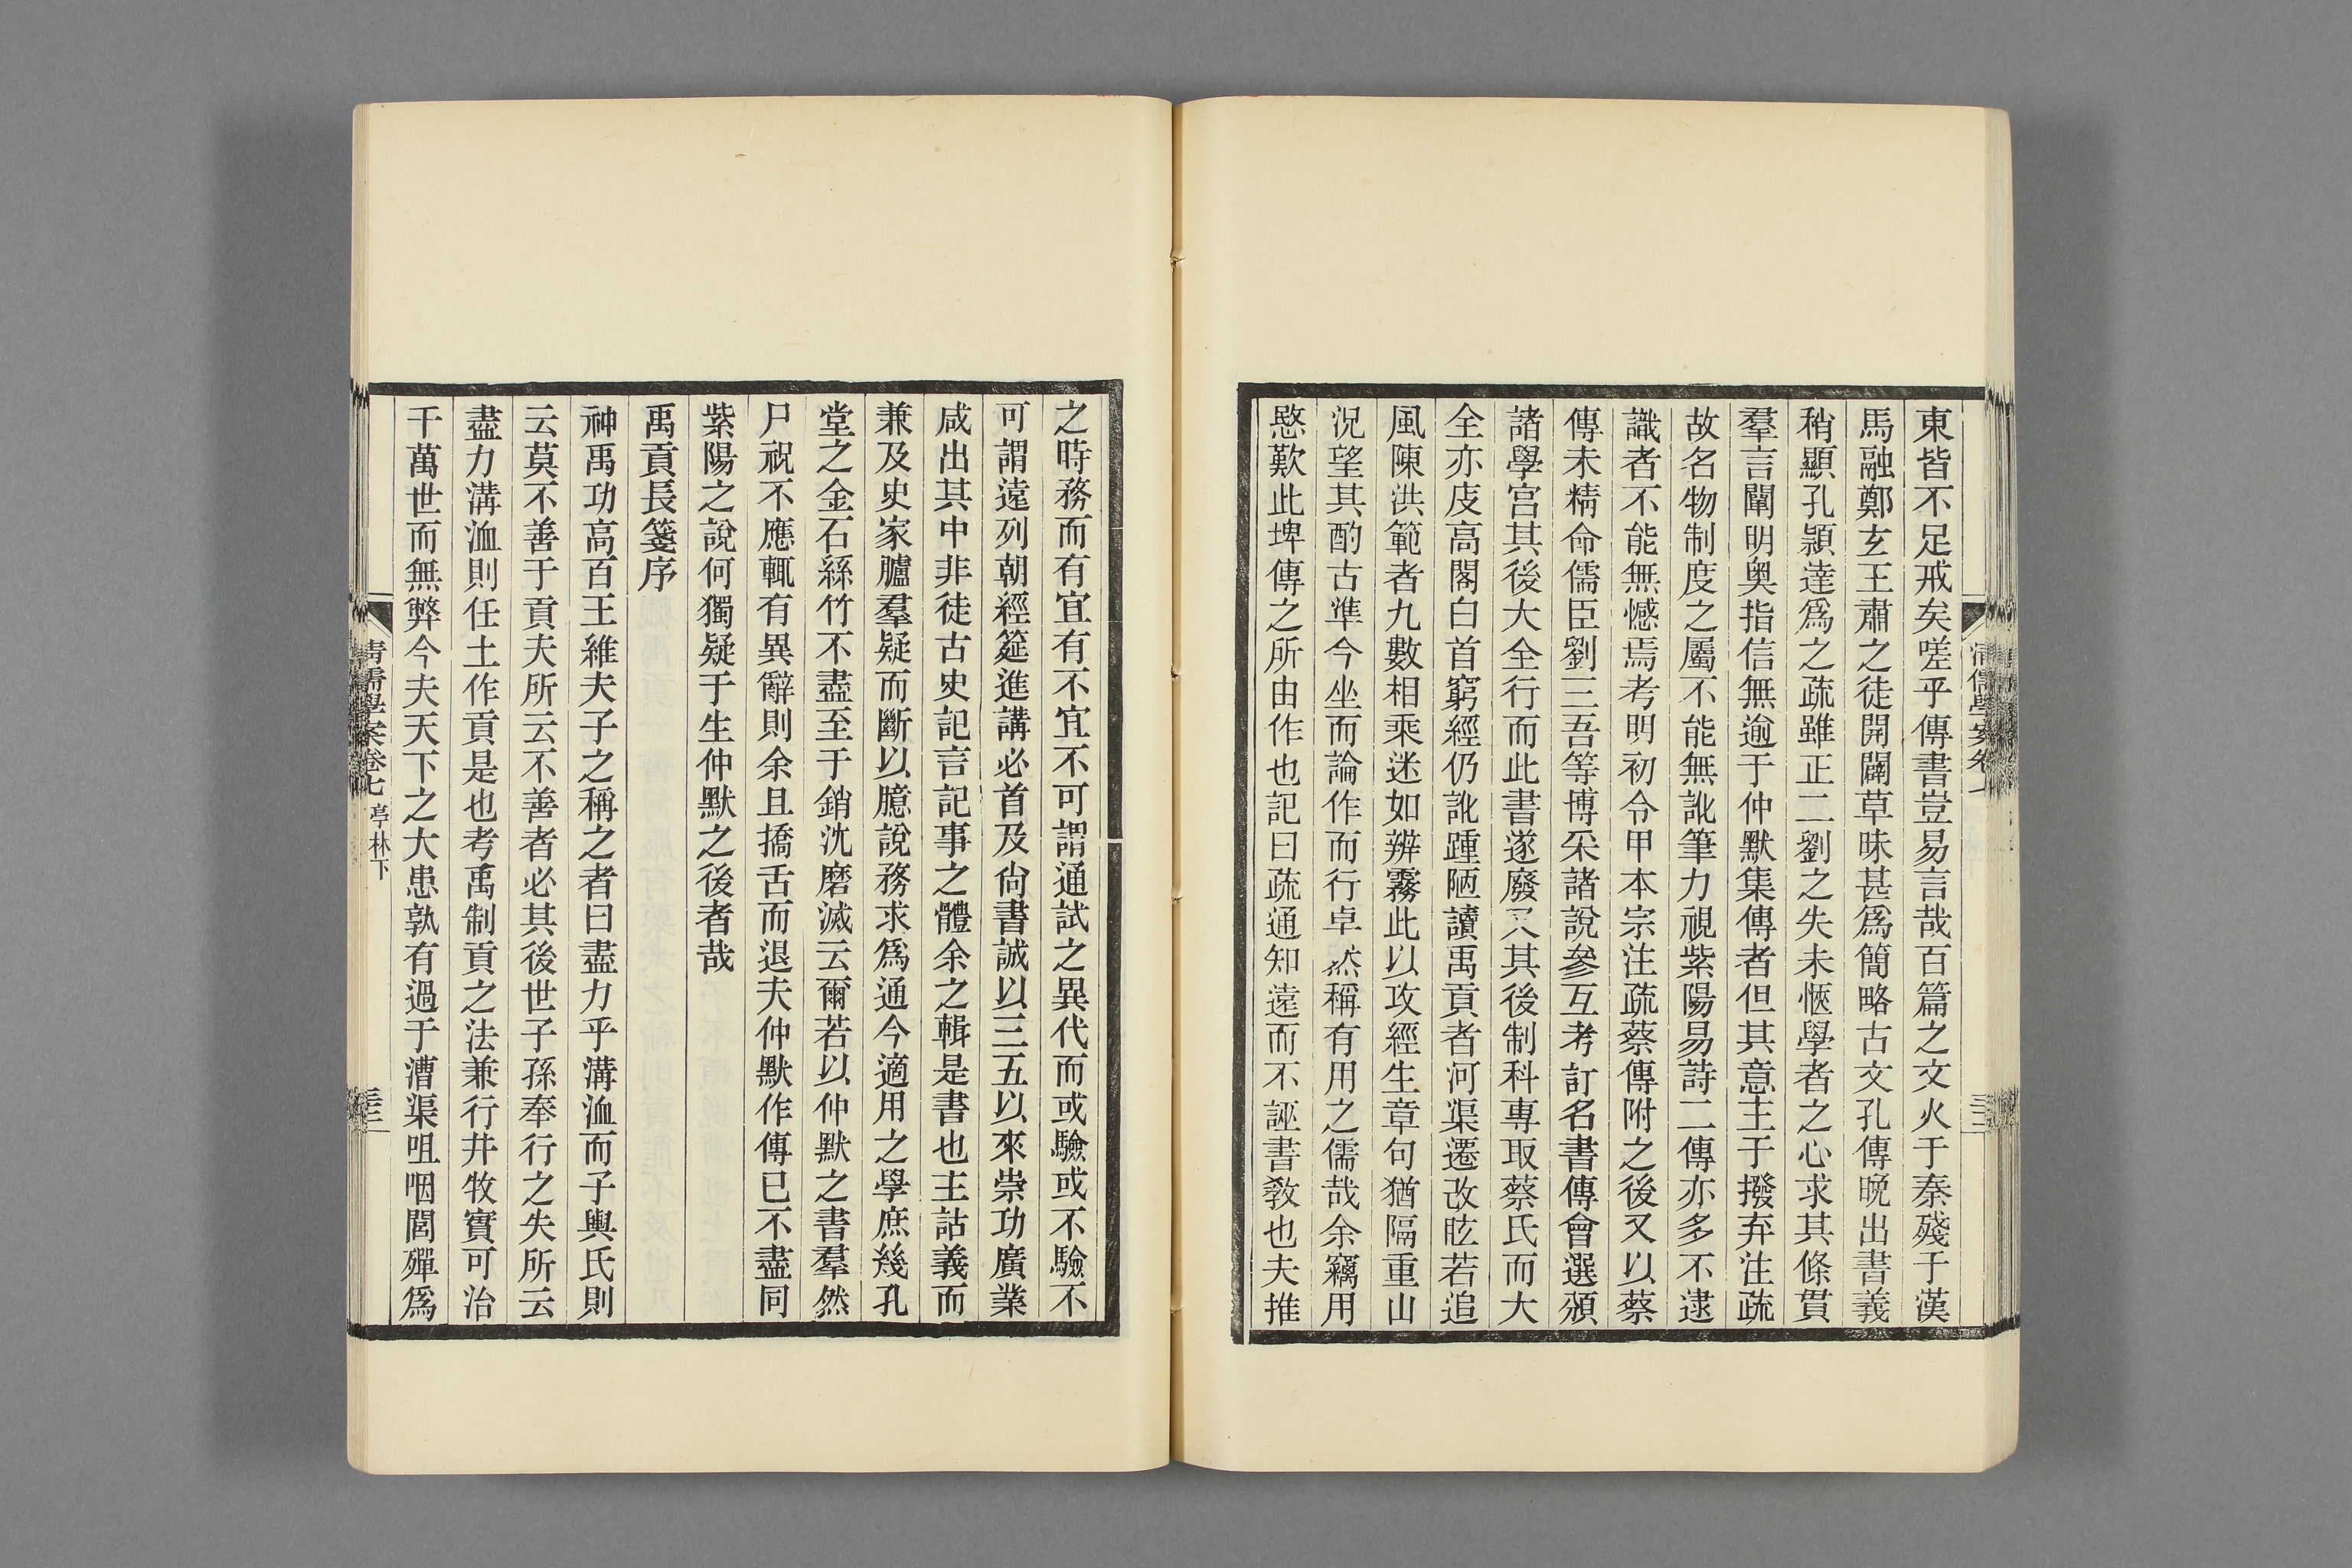 東皆不足戒矣嗟乎傳書豈易言哉百篇之文火于秦殘于漢
馬融鄭玄王肅之徒開闢草昧甚爲簡略古文孔傳晚出書義
稍顯孔頴達爲之疏雖正二劉之失未愜學者之心求其條貫
羣言闡明奧指信無逾于仲默集傳者但其意主于撥弃注疏
故名物制度之屬不能無訛筆力視紫陽易詩二傳亦多不逮
識者不能無憾焉考明初令甲本宗注疏蔡傳附之後又以蔡
傳未精命儒臣劉三吾等博采諸說參互考訂名書傳會選頒
諸學宮其後大全行而此書遂廢又其後制科專取蔡氏而大
全亦庋高閣白首窮經仍訛踵陋讀禹貢者河渠遷改眩若追
風陳洪範者九數相乘迷如辨霧此以攻經生章句猶隔重山
況望其酌古準今坐而論作而行卓然稱有用之儒哉余竊用
愍歎此埤傳之所由作也記曰疏通知遠而不誣書敎也夫推
之時務而有宜有不宜不可謂通試之異代而或驗或不驗不
可謂遠列朝經筵進講必首及尙書誠以三五以來崇功廣業
咸出其中非徒古史記言記事之體余之輯是書也主詁義而
兼及史家臚羣疑而斷以臆說務求爲通今適用之學庶幾孔
堂之金石絲竹不盡至于銷沈磨滅云爾若以仲默之書羣然
尸祝不應輒有異辭則余且撟舌而退夫仲默作傳已不盡同
紫陽之說何獨疑于生仲默之後者哉
禹貢長箋序
神禹功高百王維夫子之稱之者曰盡力乎溝洫而子輿氏則
云莫不善于貢夫所云不善者必其後世子孫奉行之失所云
盡力溝洫則任土作貢是也考禹制貢之法兼行井牧實可治
千萬世而無弊今夫天下之大患孰有過于漕渠咀咽閭殫爲
清儒學案卷七 亭林下